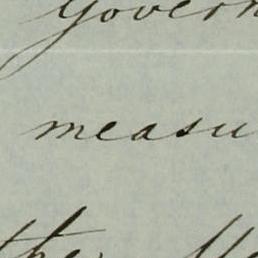 Govern
measu
the